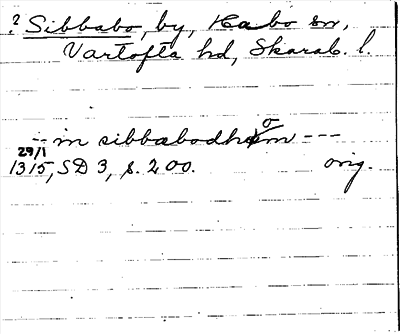 ? Sibbabo, by, Kabo sn,
Vartofta hd, Skarab. l.
-- in sibbabodhom ---
29/1
1315, SD 3, s. 200. orig.